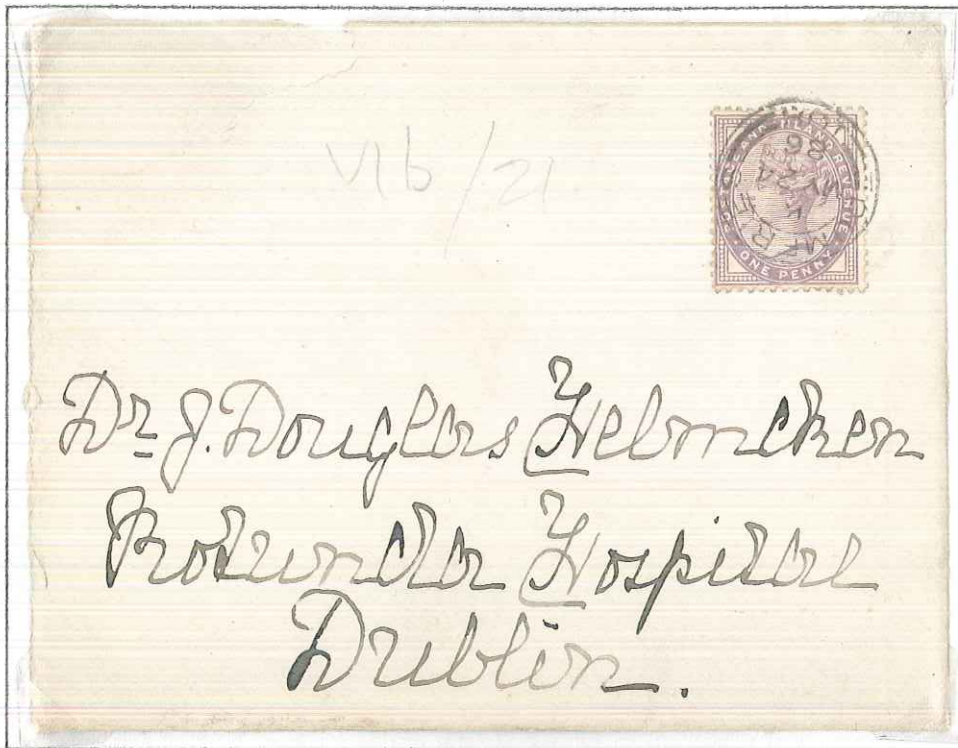 VIb/21
POSTAGE AND INLAND REVENUE
ONE PENNY
Dr J. Douglas Helmcken
Rotunda Hospital
Dublin.